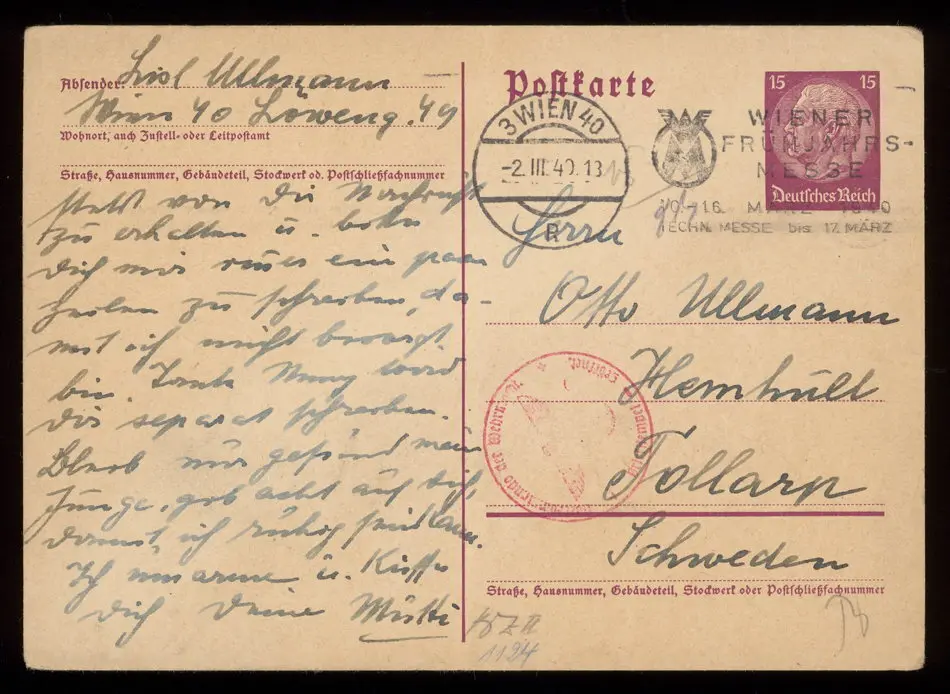 Absender: Lisl Ullmann
Wien 40 Löweng. 49
Wohnort, auch Zustell- oder Leitpostamt
Straße, Hausnummer, Gebäudeteil, Stockwerk od. Postschließfachnummer
stets von dir Nachricht
zu erhalten u. bitte
dich mir immer ein paar
Zeilen zu schreiben, da-
mit ich nicht besorgt
bin. Tante Muny wird
dir separat schreiben.
Bleib nur gesund mein
Junge, gib acht auf dich,
damit ich ruhig sein kann.
Ich umarme u. Küsse
dich Deine Mutti
Postkarte
3 WIEN 40
-2.III.40.13
R
WIENER
FRÜHJAHRS-
MESSE
10.-16. MÄRZ 1940
TECHN. MESSE bis 17. MÄRZ
15 15
Deutsches Reich
Herrn
Otto Ullmann
Hemhult
Tollarp
Schweden
Straße, Hausnummer, Gebäudeteil, Stockwerk oder Postschließfachnummer
Oberkommando der Wehrmacht
Geöffnet
1124